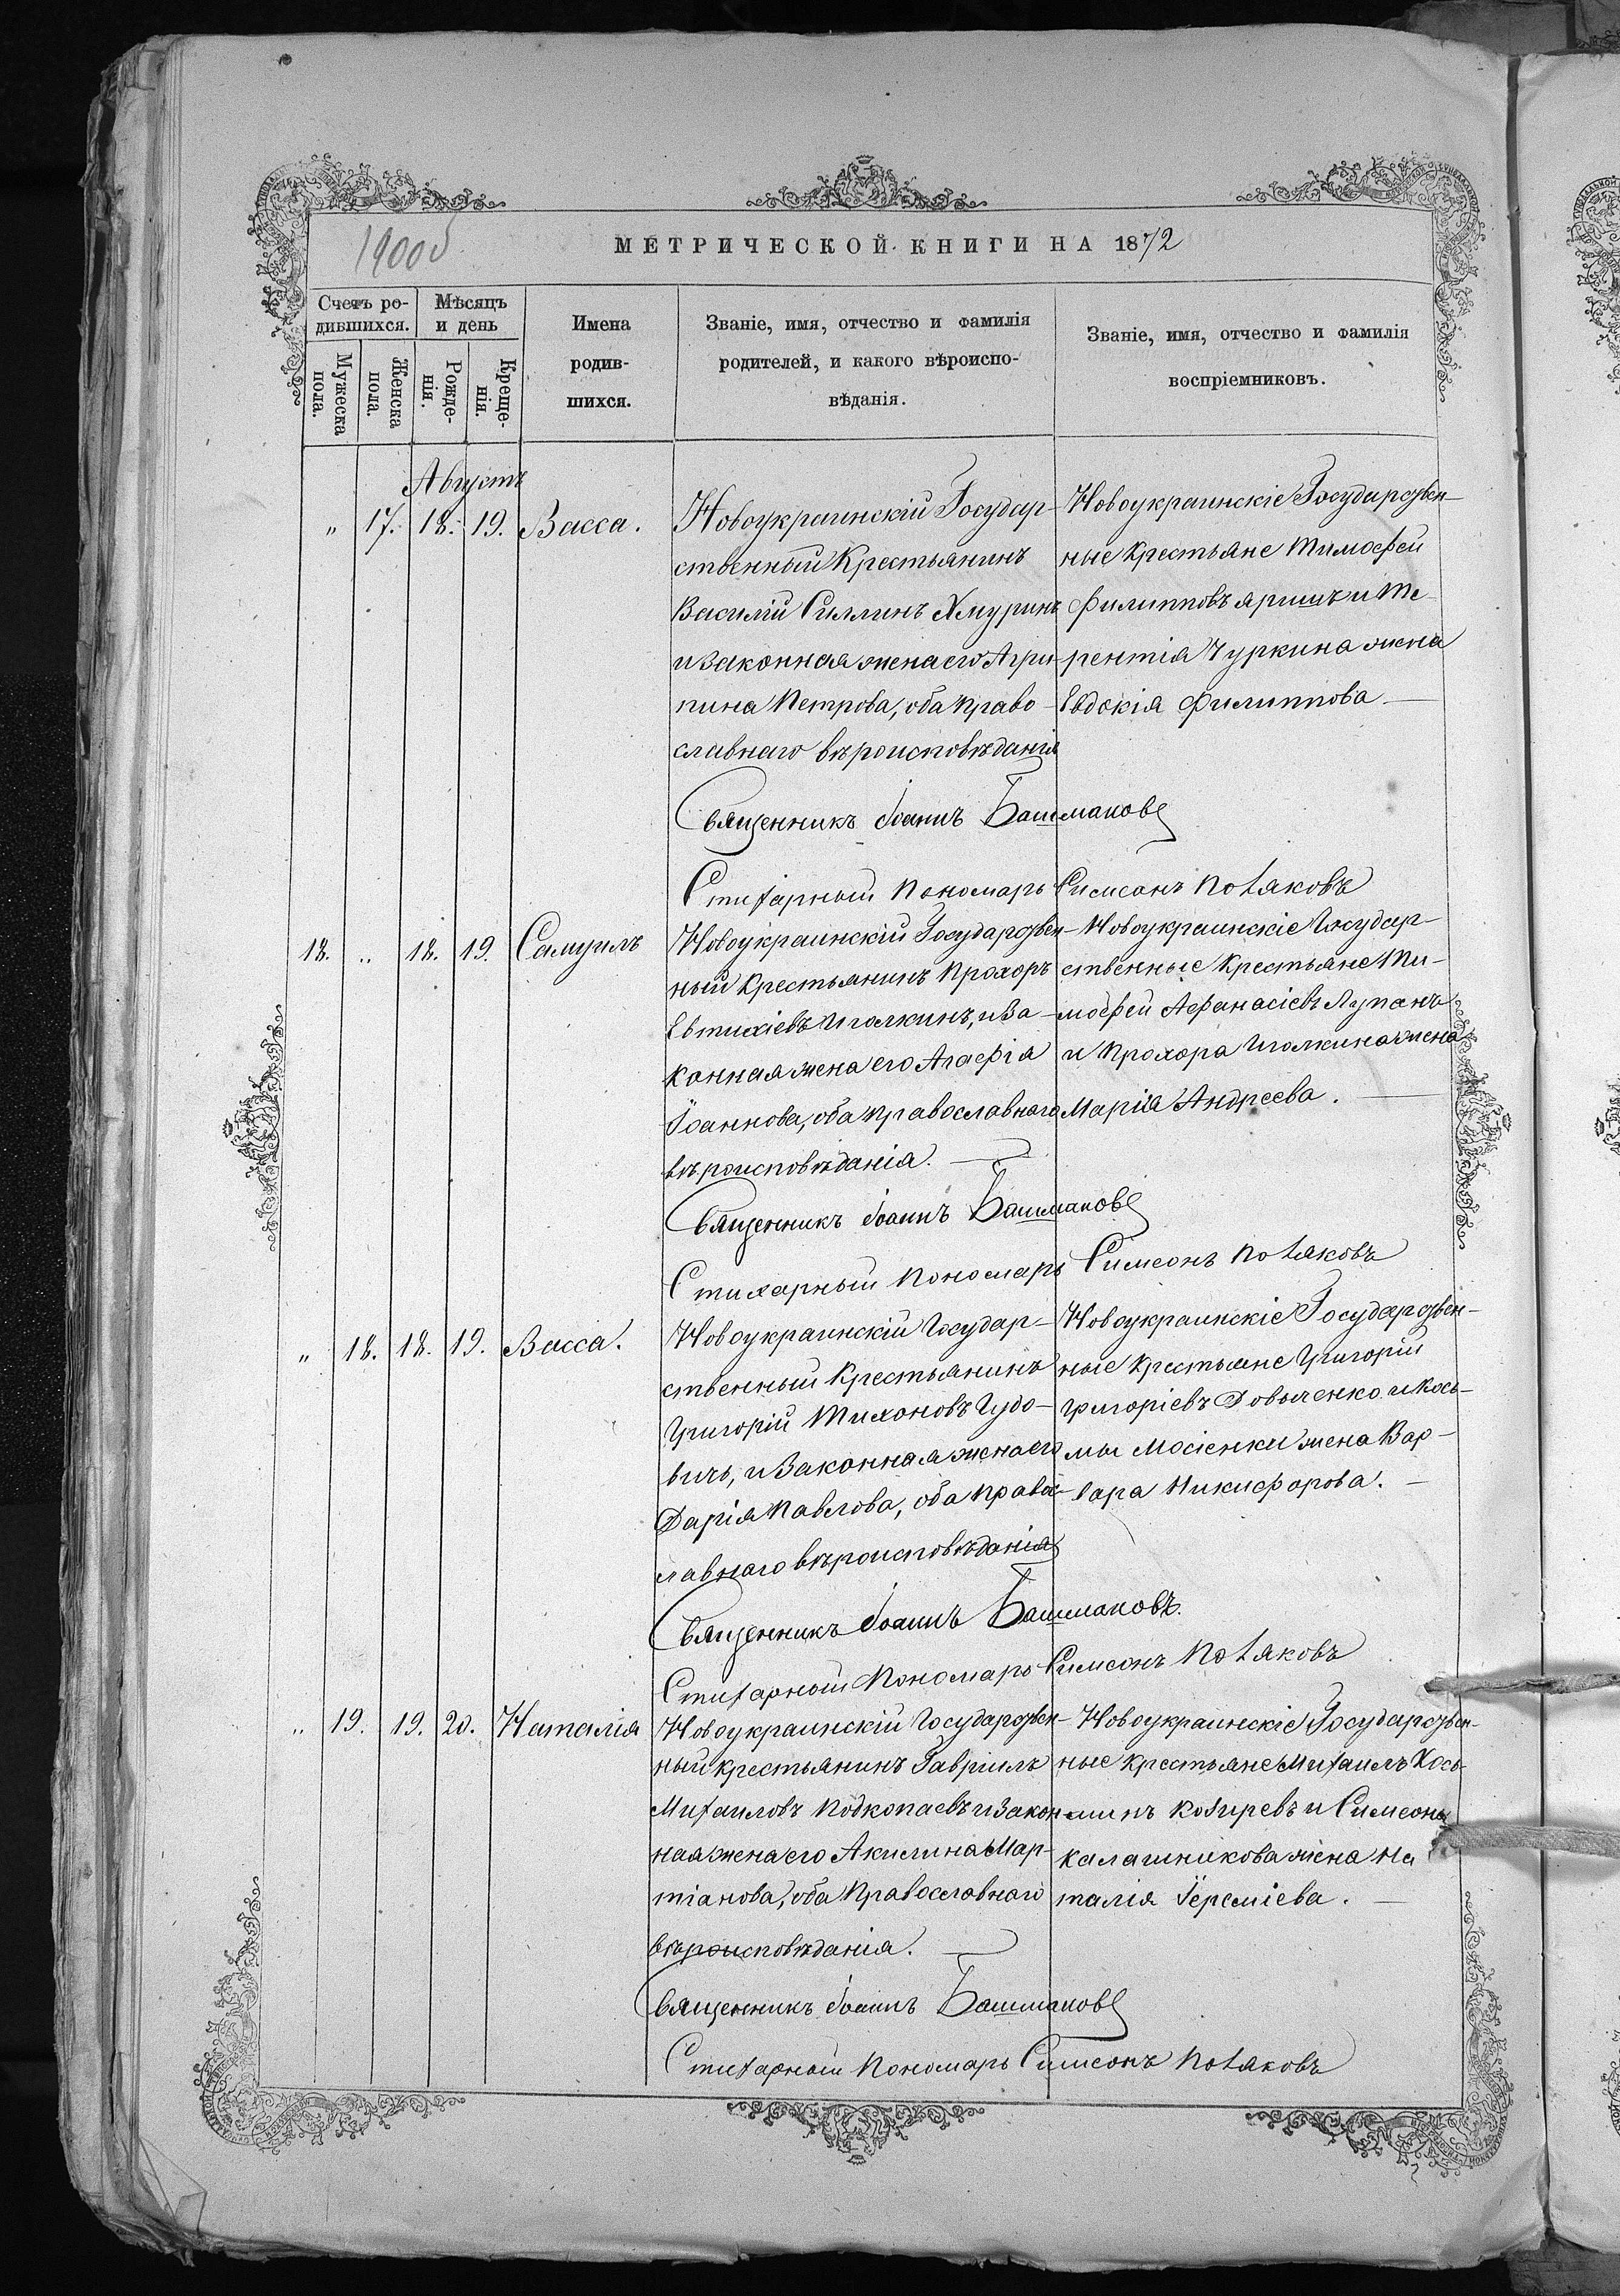 1900об
МЕТРИЧЕСКОЙ КНИГИ НА 1872
Счетъ ро-
дившихся.
Мѣсяцъ
и день
Мужеска
пола.
Женска
пола.
Рожде-
нія.
Креще-
нія.
Имена
родив-
шихся.
Званіе, имя, отчество и фамилія
родителей, и какого вѣроиспо-
вѣданія.
Званіе, имя, отчество и фамилія
воспріемниковъ.
Августъ
" 17. 18. 19. Васса.
Новоукраинскій Государ-
ственный Крестьянинъ
Василій Хмуринъ
и Законная жена его Агри-
пина Петрова, оба право-
славнаго вѣроисповѣданія
Новоукраинскіе Государствен-
ные Крестьяне Тимофей
Филипповъ Яришъ и Те-
рентія Чуркина жена
Евдокія Филиппова
Священникъ Іоаннъ Башмаковъ
Стихарный Пономарь Симеонъ Поляковъ
18. " 18. 19. Самуилъ
Новоукраинскій Государствен-
ный Крестьянинъ Прохоръ
Евтихіевъ Иголкинъ, и За-
конная жена его Агафія
Іоаннова, оба православнаго
вѣроисповѣданія.
Новоукраинскіе Государ-
ственные Крестьяне Ти-
мофей Афанасіевъ Лупанъ
и Прохора Иголкина жена
Марія Андреева.
Священникъ Іоаннъ Башмаковъ
Стихарный Пономарь Симеонъ Поляковъ
" 18. 18. 19. Васса.
Новоукраинскій Государ-
ственный Крестьянинъ
Григорій Тихоновъ Гудо-
вичъ, и Законная жена его
Дарія Павлова, оба правос-
лавнаго вѣроисповѣданія
Новоукраинскіе Государствен-
ные Крестьяне Григорій
Григоріевъ Довыленко и Кось-
мы Мосіенки жена Вар-
вара Никифорова.
Священникъ Іоаннъ Башмаковъ.
Стихарный Пономарь Симеонъ Поляковъ
" 19. 19. 20. Наталія
Новоукраинскій Государствен-
ный крестьянинъ Гавріилъ
Михаиловъ Подкопаевъ и Закон-
ная жена его Акилина Мар-
тіанова, оба Православнаго
вѣроисповѣданія.
Новоукраинскіе Государствен-
ные Крестьяне Михаилъ Кось-
минъ Козиревъ и Симеона
Калашникова жена На
талія Іереміева.
Священникъ Іоаннъ Башмаковъ
Стихарный Пономарь Симеонъ Поляковъ